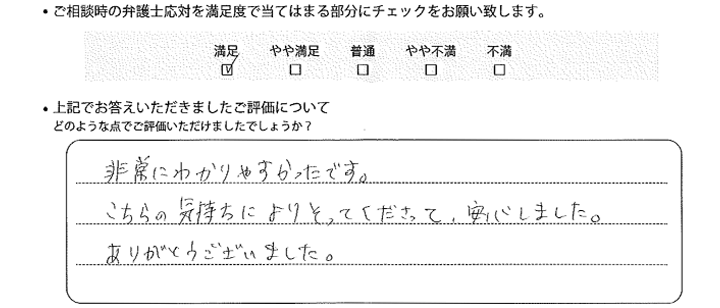 • ご相談時の弁護士応対を満足度で当てはまる部分にチェックをお願い致します。
満足 やや満足 普通 やや不満 不満
☑ □ □ □ □
• 上記でお答えいただきましたご評価について
どのような点でご評価いただけましたでしょうか？
非常にわかりやすかったです。
こちらの気持ちによりそってくださって、安心しました。
ありがとうございました。